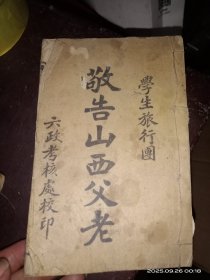 學生旅行團
敬告山西父老
六政考核處校印
2025.09.26 00:18